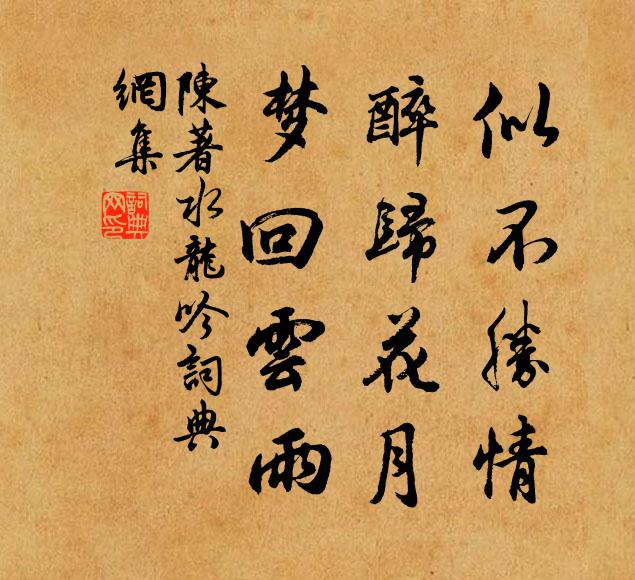 似不勝情
醉歸花月
梦回雲雨
陳著水龍吟詞典
網集
詞典
网印